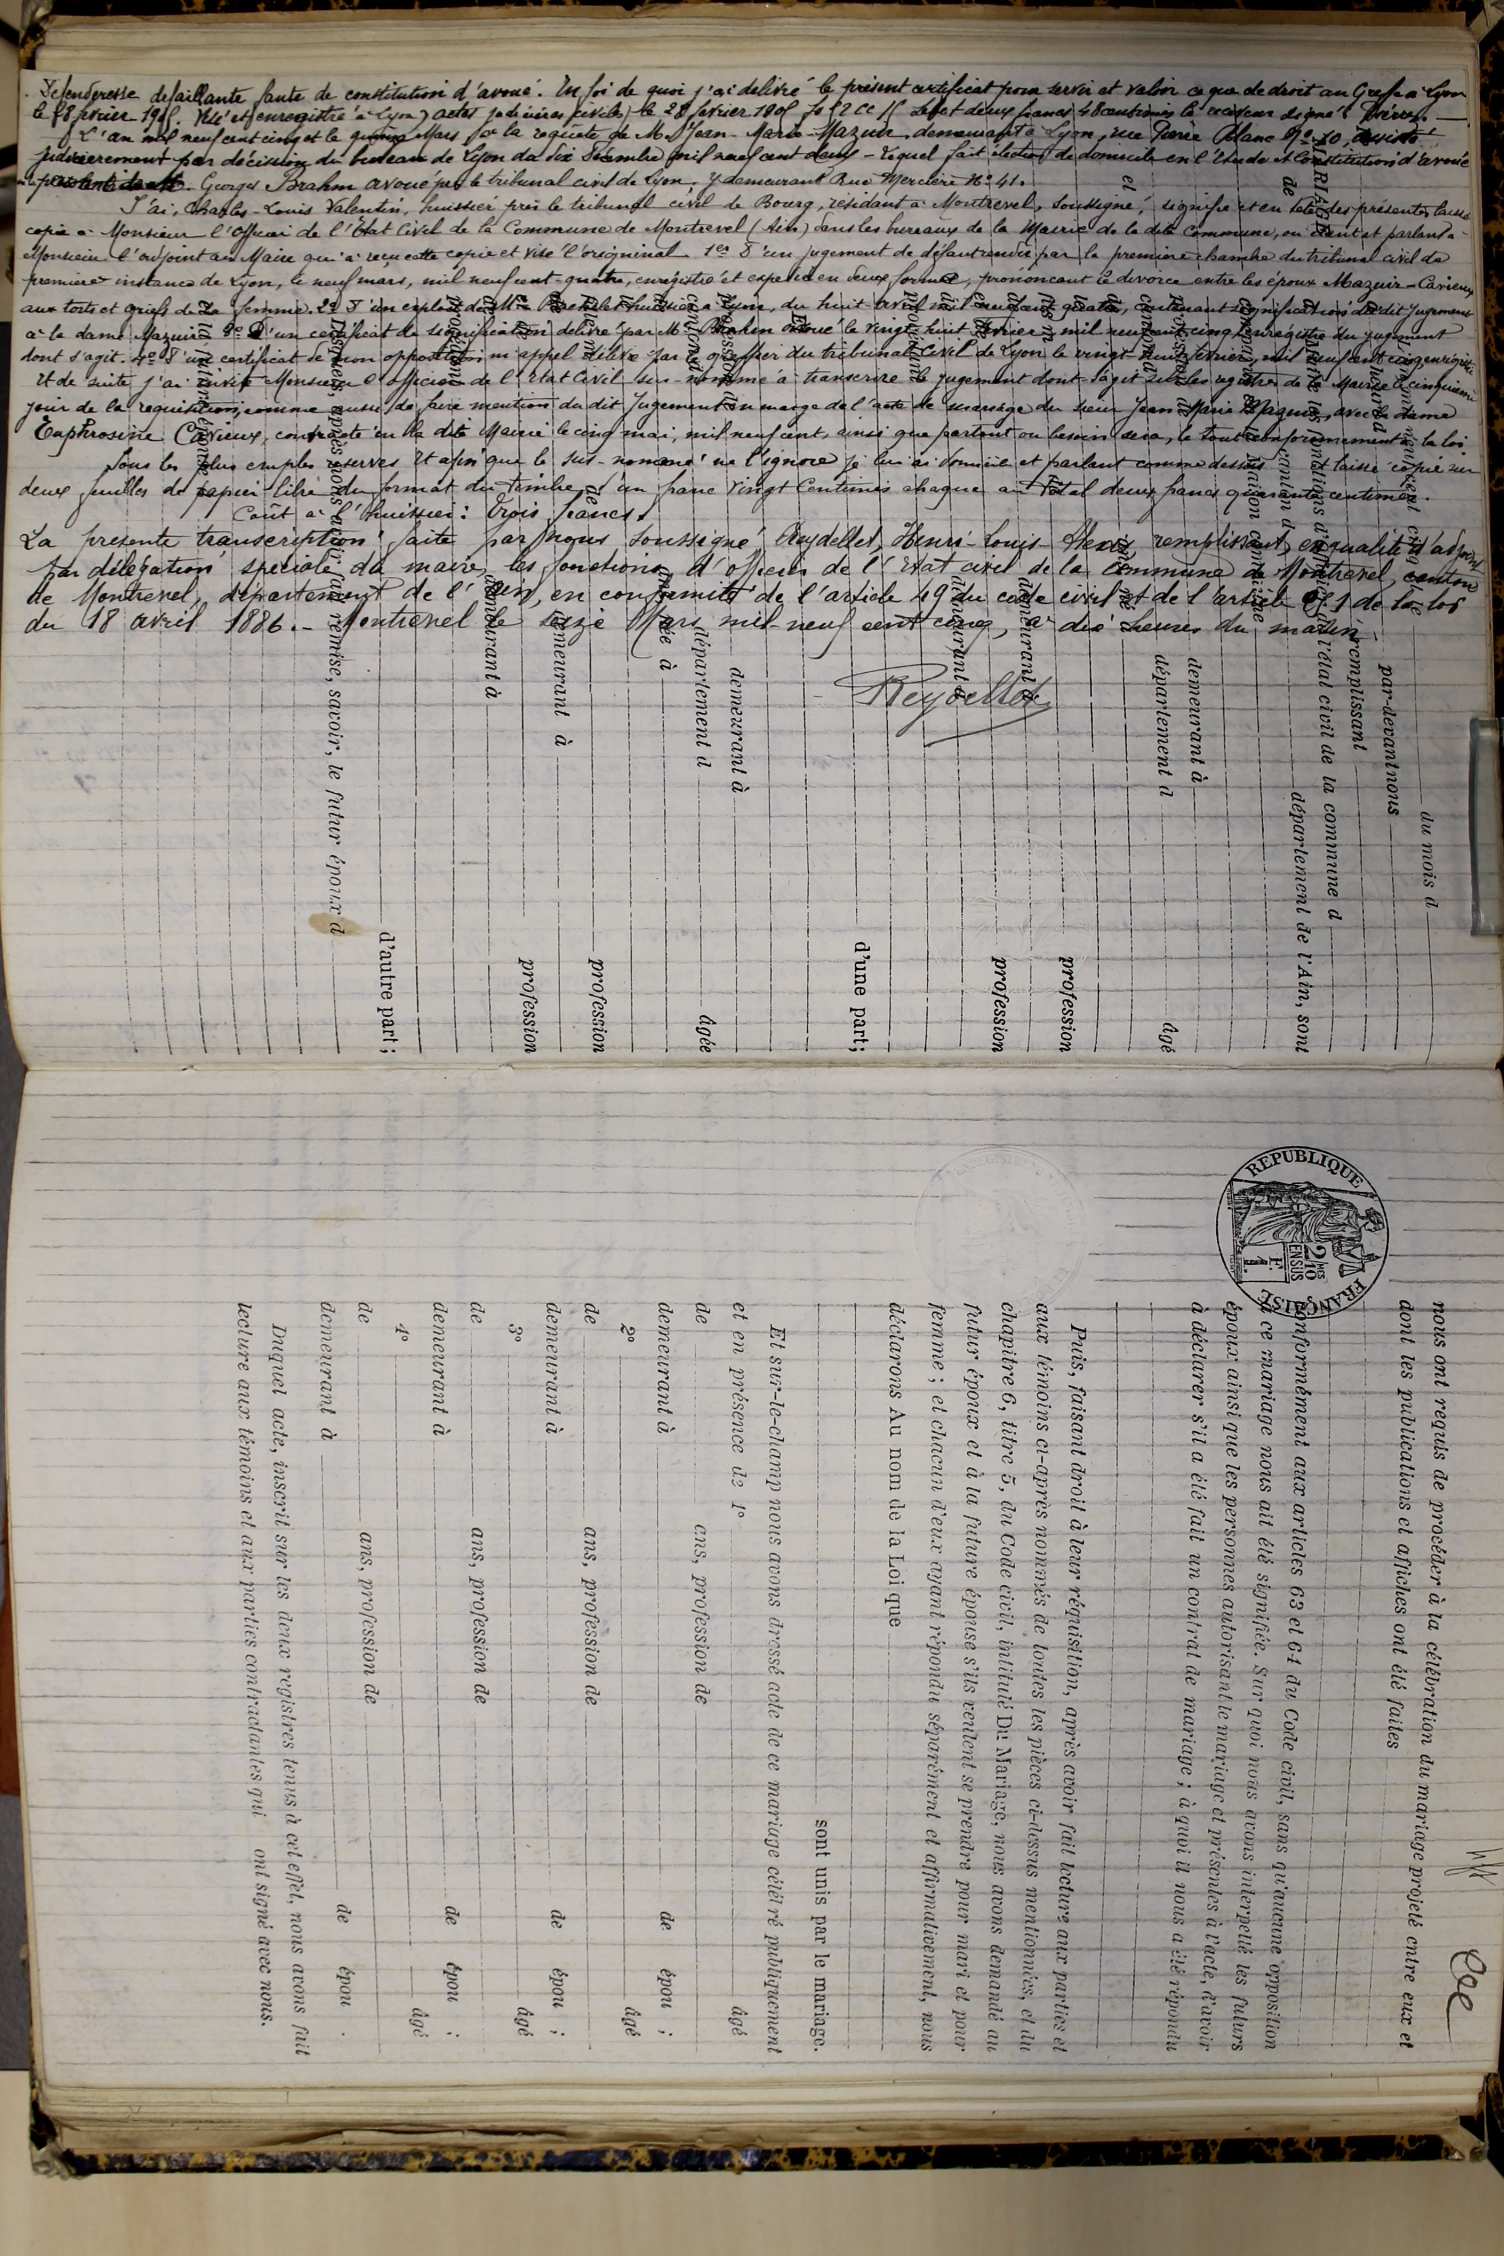 Defenderesse defaillante faute de constitution d'avoué. En foi de quoi j'ai delivré le présent certificat pour servir et valoir ce que de droit au Greffe à Lyon
le 28 février 1905. enregistré à Lyon actes judiciaires civils) le 28 février 1905 deux francs 48 centimes le receveur signé
L'an mil neuf cent cinq et le quinze Mars à la requete de M. Jean-Marie Mazuir, demeurant à Lyon, rue Pierre Blanc No 10, assisté
judiciairement par décision du bureau de Lyon du six Décembre mil neuf cent deux - Lequel fait élection de domicile en l'étude et Constitution d'avoué
Georges Brahm avoué près le tribunal civil de Lyon. y demeurant Rue Mercière No 41.
J'ai, Charles-Louis Valentin, huissier près le tribunal civil de Bourg, résidant à Montrevel, soussigné, signifié et en tête des présentes laissé
copie à Monsieur l'Officier de l'état Civil de la Commune de Montrevel (Ain) dans les bureaux de la Mairie de la dite Commune, ou étant et parlant à
Monsieur l'adjoint au Maire qui a reçu cette copie et visé l'original 1er D'un jugement de défaut rendu par la première chambre du tribunal civil de
première instance de Lyon, le neuf mars, mil neuf cent quatre, enregistré et expedié en deux formes, prononcant le divorce entre les époux Mazuir-Carieux
aux torts et griefs de la femme. 2o D'un exploit de Me huissier à Lyon, du huit avril mil neuf cent quatre, contenant signification dudit Jugement
à la dame Mazuir 3o D'un certificat de signification délivré par Me Brahm avoué le vingt huit février mil neuf cent cinq enregistré du jugement
dont s'agit. 4o D'un certificat de non opposition ni appel délivré par le greffier du tribunal Civil de Lyon le vingt huit février, mil neuf cent cinq enregistré
Et de suite j'ai invité Monsieur l'officier de l'Etat Civil sus-nommé à transcrire le jugement dont s'agit sur les registres de la Mairie le cinquième
jour de la requisition, comme aussi de faire mention du dit Jugement en marge de l'acte de mariage du sieur Jean Marie Mazuir, avec la dame
Euphrosine Carieux, contracté en la dite Mairie le cinq mai, mil neuf cent, ainsi que partout ou besoin sera, le tout conformement à la loi
Sous les plus amples reserves Et afin que le sus-nommé ne l'ignore je lui ai domicile et parlant comme dessus et laissé copie sur
deux feuilles de papier libre du format du timbre d'un franc vingt Centimes chaque au total deux francs quarante centimes.
Coût à l'huissier: trois francs.
La presente transcription faite par nous soussigné Reydellet, Henri-Louis-Alexis, remplissant, en qualité d'adjoint
par délégation spéciale du maire, les fonctions d'officier de l'état civil de la commune de Montrevel, canton
de Montrevel, département de l'Ain, en conformité de l'article 49 du code civil et de l'article 251 de la loi
du 18 avril 1886. - Montrevel le seize Mars mil neuf cent cinq, à dix heures du matin
Reydellet
du mois d
par-devant nous
remplissant
l'état civil de la commune d
département de l'Ain, sont
et
demeurant à
département d
âgé
profession
demeurant à
profession
demeurant à
d'une part;
Et
demeurant à
département d
âgée
née à
profession
demeurant à
profession
demeurant à
d'autre part;
remise, savoir, le futur époux d
nous ont requis de procéder à la célébration du mariage projeté entre eux et
dont les publications et affiches ont été faites
conformément aux articles 63 et 64 du Code civil, sans qu'aucune opposition
à ce mariage nous ait été signifiée. Sur quoi nous avons interpellé les futurs
époux ainsi que les personnes autorisant le mariage et présentes à l'acte, d'avoir
à déclarer s'il a été fait un contrat de mariage; à quoi il nous a été répondu
Puis, faisant droit à leur réquisition, après avoir fait lecture aux parties et
aux témoins ci-après nommés de toutes les pièces ci-dessus mentionnées, et du
chapitre 6, titre 5, du Code civil, intitulé Du Mariage, nous avons demandé au
futur époux et à la future épouse s'ils veulent se prendre pour mari et pour
femme; et chacun d'eux ayant répondu séparément et affirmativement, nous
déclarons Au nom de la Loi que
sont unis par le mariage.
Et sur-le-champ nous avons dressé acte de ce mariage célébré publiquement
et en présence de 1° âgé
de ans, profession de
demeurant à de épou ;
2° âgé
de ans, profession de
demeurant à de épou ;
3° âgé
de ans, profession de
demeurant à de épou ;
4° âgé
de ans, profession de
demeurant à de épou .
Duquel acte, inscrit sur les deux registres tenus à cet effet, nous avons fait
lecture aux témoins et aux parties contractantes qui ont signé avec nous.
REPUBLIQUE FRANÇAISE
2/10 MES
ENSUS
F. 1.